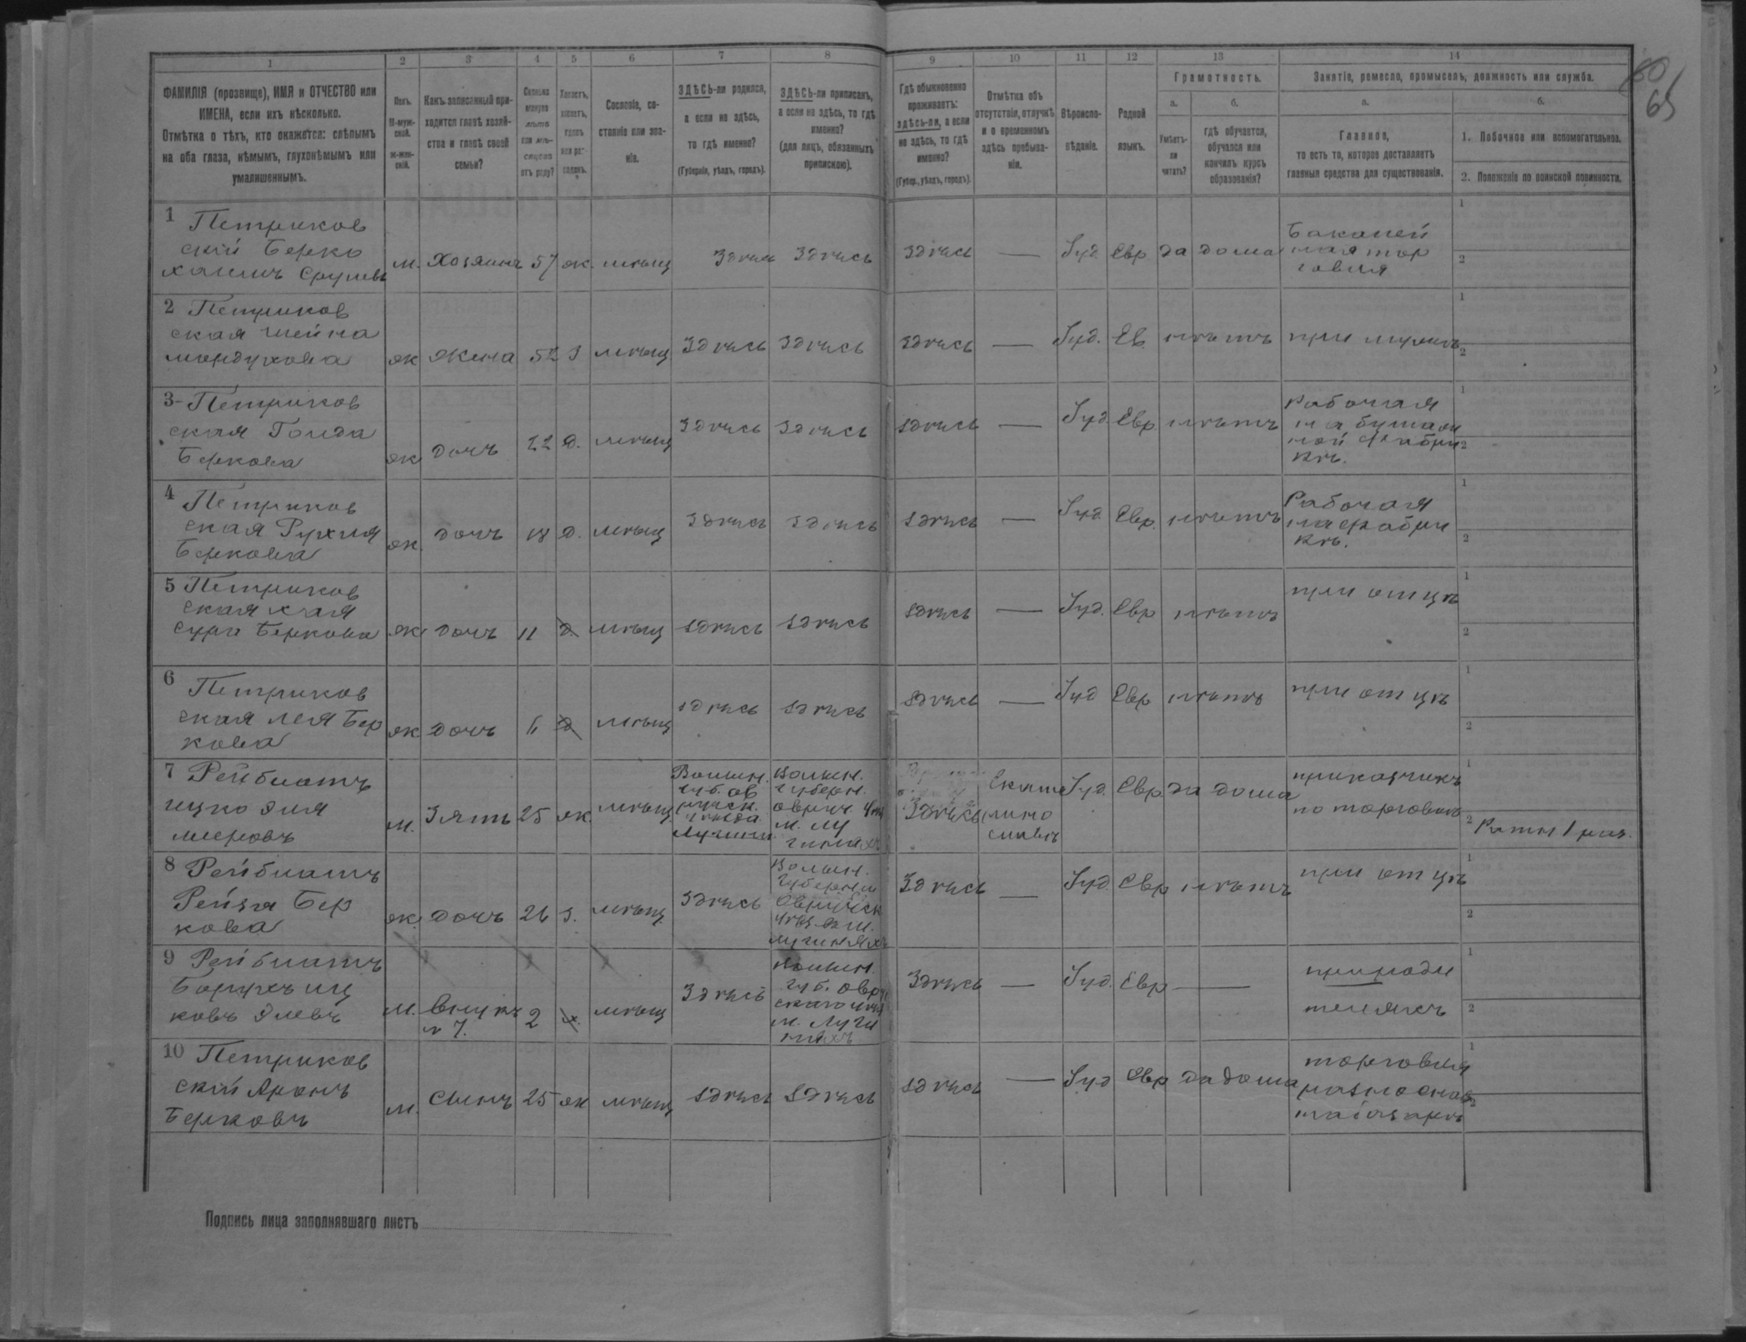 60
65
1 2 3 4 5 6 7 8 9 10 11 12 13 14
ФАМИЛІЯ (прозвище), ИМЯ и ОТЧЕСТВО или
ИМЕНА, если ихъ нѣсколько.
Отмѣтка о тѣхъ, кто окажется: слѣпымъ
на оба глаза, нѣмымъ, глухонѣмымъ или
умалишеннымъ.
Полъ.
М-муж-
ской.
Ж-жен-
скій.
Какъ записанный при-
ходится главѣ хозяй-
ства и главѣ своей
семьи?
Сколько
минуло
лѣтъ
или мѣ-
сяцевъ
отъ роду?
Холостъ,
женатъ,
вдовъ
или раз-
веденъ.
Сословіе, со-
стояніе или зва-
ніе.
ЗДѢСЬ-ли родился,
а если не здѣсь,
то гдѣ именно?
(Губернія, уѣздъ, городъ).
ЗДѢСЬ-ли приписанъ,
а если не здѣсь, то гдѣ
именно?
(для лицъ, обязанныхъ
припискою).
Гдѣ обыкновенно
проживаетъ:
здѣсь-ли, а если
не здѣсь, то гдѣ
именно?
(Губер., уѣздъ, городъ).
Отмѣтка объ
отсутствіи, отлучкѣ
и о временномъ
здѣсь пребыва-
ніи.
Вѣроиспо-
вѣданіе.
Родной
языкъ.
Грамотность.
а.
Умѣетъ-
ли
читать?
б.
гдѣ обучается,
обучался или
кончилъ курсъ
образованія?
Занятіе, ремесло, промыселъ, должность или служба.
а.
Главное,
то есть то, которое доставляетъ
главныя средства для существованія.
б.
1. Побочное или вспомогательное.
2. Положеніе по воинской повинности.
1 Петриков
скій Берко
Хаимъ Срулевъ м. Хозяинъ 57 ж. мѣщ Здѣсь Здѣсь Здѣсь — Iуд Евр да дома Бакалей
ная тор
говля
2 Петриков
ская Шейна
Мордухова ж жена 52 З мѣщ Здѣсь Здѣсь Здѣсь — Iуд. Ев нѣтъ при мужѣ
3 Петриков
ская Голда
Беркова ж дочь 22 д. мѣщ Здѣсь Здѣсь Здѣсь — Iуд. Евр нѣтъ Рабочая
на бумаж
ной фабри
кѣ.
4 Петриков
ская Рухля
Беркова ж. дочь 18 д. мѣщ Здѣсь Здѣсь Здѣсь — Iуд Евр. нѣтъ Рабочая
на фабри
кѣ.
5 Петриков
ская Хая
Сура Беркова ж дочь 11 д мѣщ Здѣсь Здѣсь Здѣсь — Iуд. Евр нѣтъ при отцѣ
6 Петриков
ская Лея Бер
кова ж дочь 6 д мѣщ Здѣсь Здѣсь Здѣсь — Iуд Евр нѣтъ при отцѣ
7 Рейбматъ
Ицко Эля
м. Зять 25 ж. мѣщ Волын.
губ. Ов
руцк.
уѣзда
Лугины Волын.
губерн.
Овруч. у
м. Лу
гинахъ Здѣсь Екате
рино
славъ Iуд. Евр да дома приказчикъ
по торговлѣ
2 Ратн 1 раз.
8 Рейбматъ
Рейза Бер
кова ж. дочь 26 З. мѣщ Здѣсь Волын.
губерніи
Овруческ
м.
Лугинахъ Здѣсь — Iуд Евр нѣтъ при отцѣ
9 Рейбматъ
Борухъ Иц
ковъ Элевъ м. внукъ
№ 7. 2 х. мѣщ Здѣсь Волын.
губ. Овру
скаго
м. Луги
нахъ Здѣсь — Iуд. Евр — при роди
теляхъ
10 Петриков
скій Аронъ
Берковъ м. сынъ 25 ж мѣщ Здѣсь Здѣсь Здѣсь — Iуд Евр да дома торговля
разносная
на базарѣ
Подпись лица заполнявшаго листъ